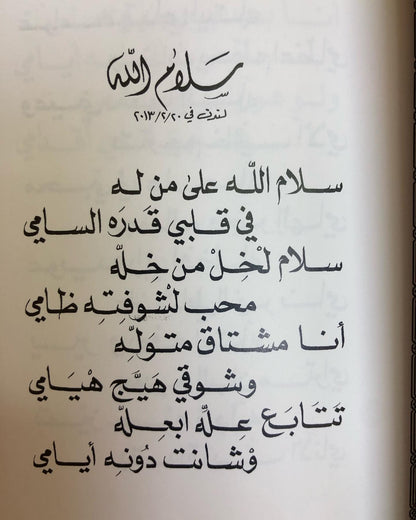 سلام الله
لندن في ٢٠١٣/٢/٢٠
سلام اللّه على من له
في قلبي قَدرَه السامي
سلام لْخِلْ من خِلّه
محب لشوفتِه ظامي
أنا مشتاق متولّه
وشوقي هَيَّج هْيَامي
تتابَع عِلّه ابعِلّه
وْشانت دُونه أيامي